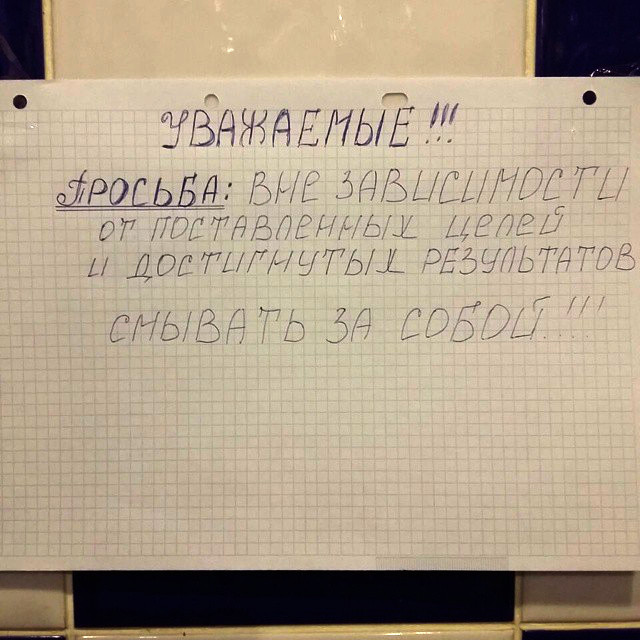 УВАЖАЕМЫЕ!!!
ПРОСЬБА: ВНЕ ЗАВИСИМОСТИ
ОТ ПОСТАВЛЕННЫХ ЦЕЛЕЙ
И ДОСТИГНУТЫХ РЕЗУЛЬТАТОВ
СМЫВАТЬ ЗА СОБОЙ!!!